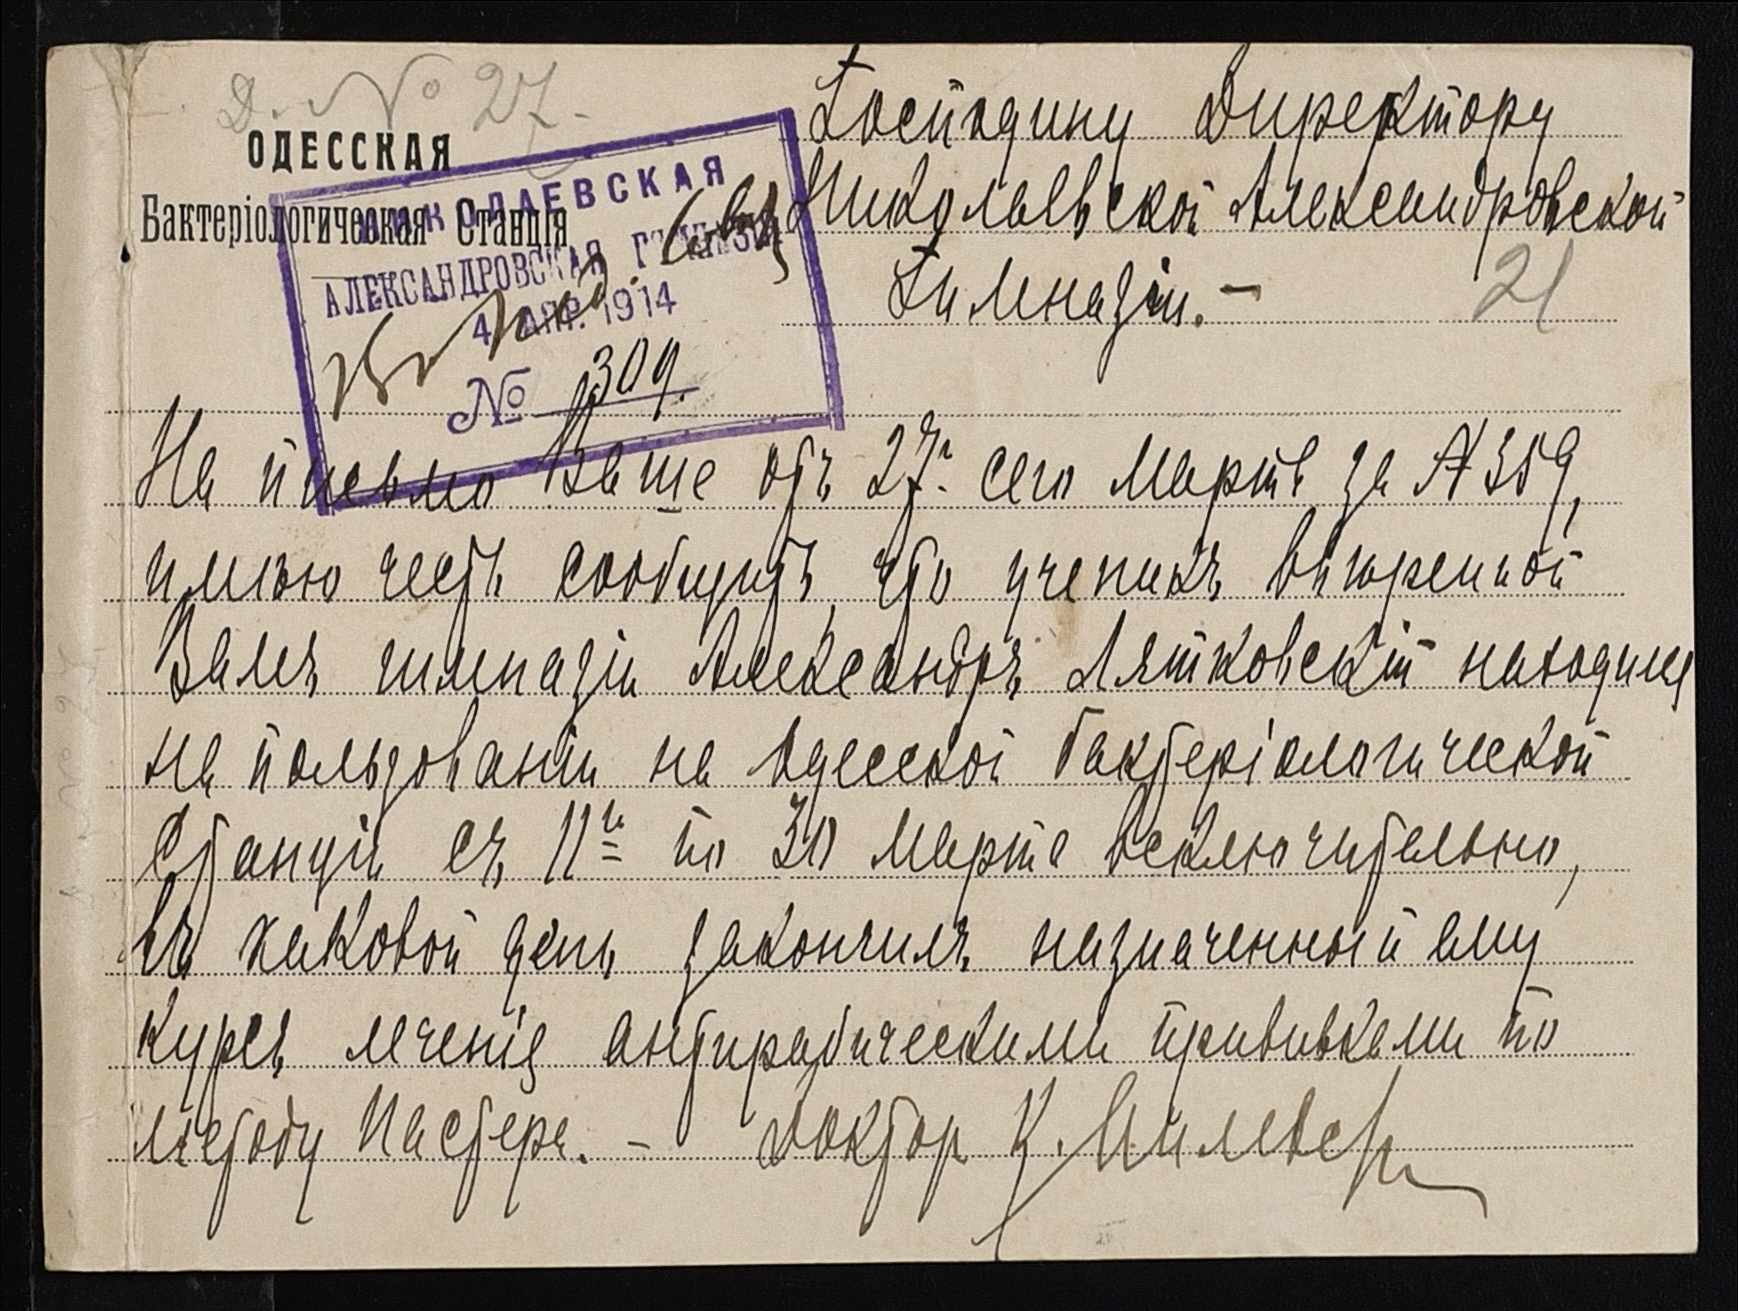 Д. № 27.
ОДЕССКАЯ
Бактеріологическая Станція
НИКОЛАЕВСКАЯ
АЛЕКСАНДРОВСКАЯ ГИМНАЗІЯ
4 АПР. 1914
№ 309.
Господину Директору
Николаевской Александровской
Гимназіи. –
21
На письмо Ваше отъ 27. сего Марта за № 359,
имѣю честь сообщить, что ученикъ ввѣренной
Вамъ гимназіи Александръ Лятковскій находился
на пользованіи на Одесской бактеріологической
Станціи съ 11го по 30 Марта включительно,
въ каковой день закончилъ назначенный ему
курсъ леченія антирабическими прививками по
методу Пастера. – Доктор К.